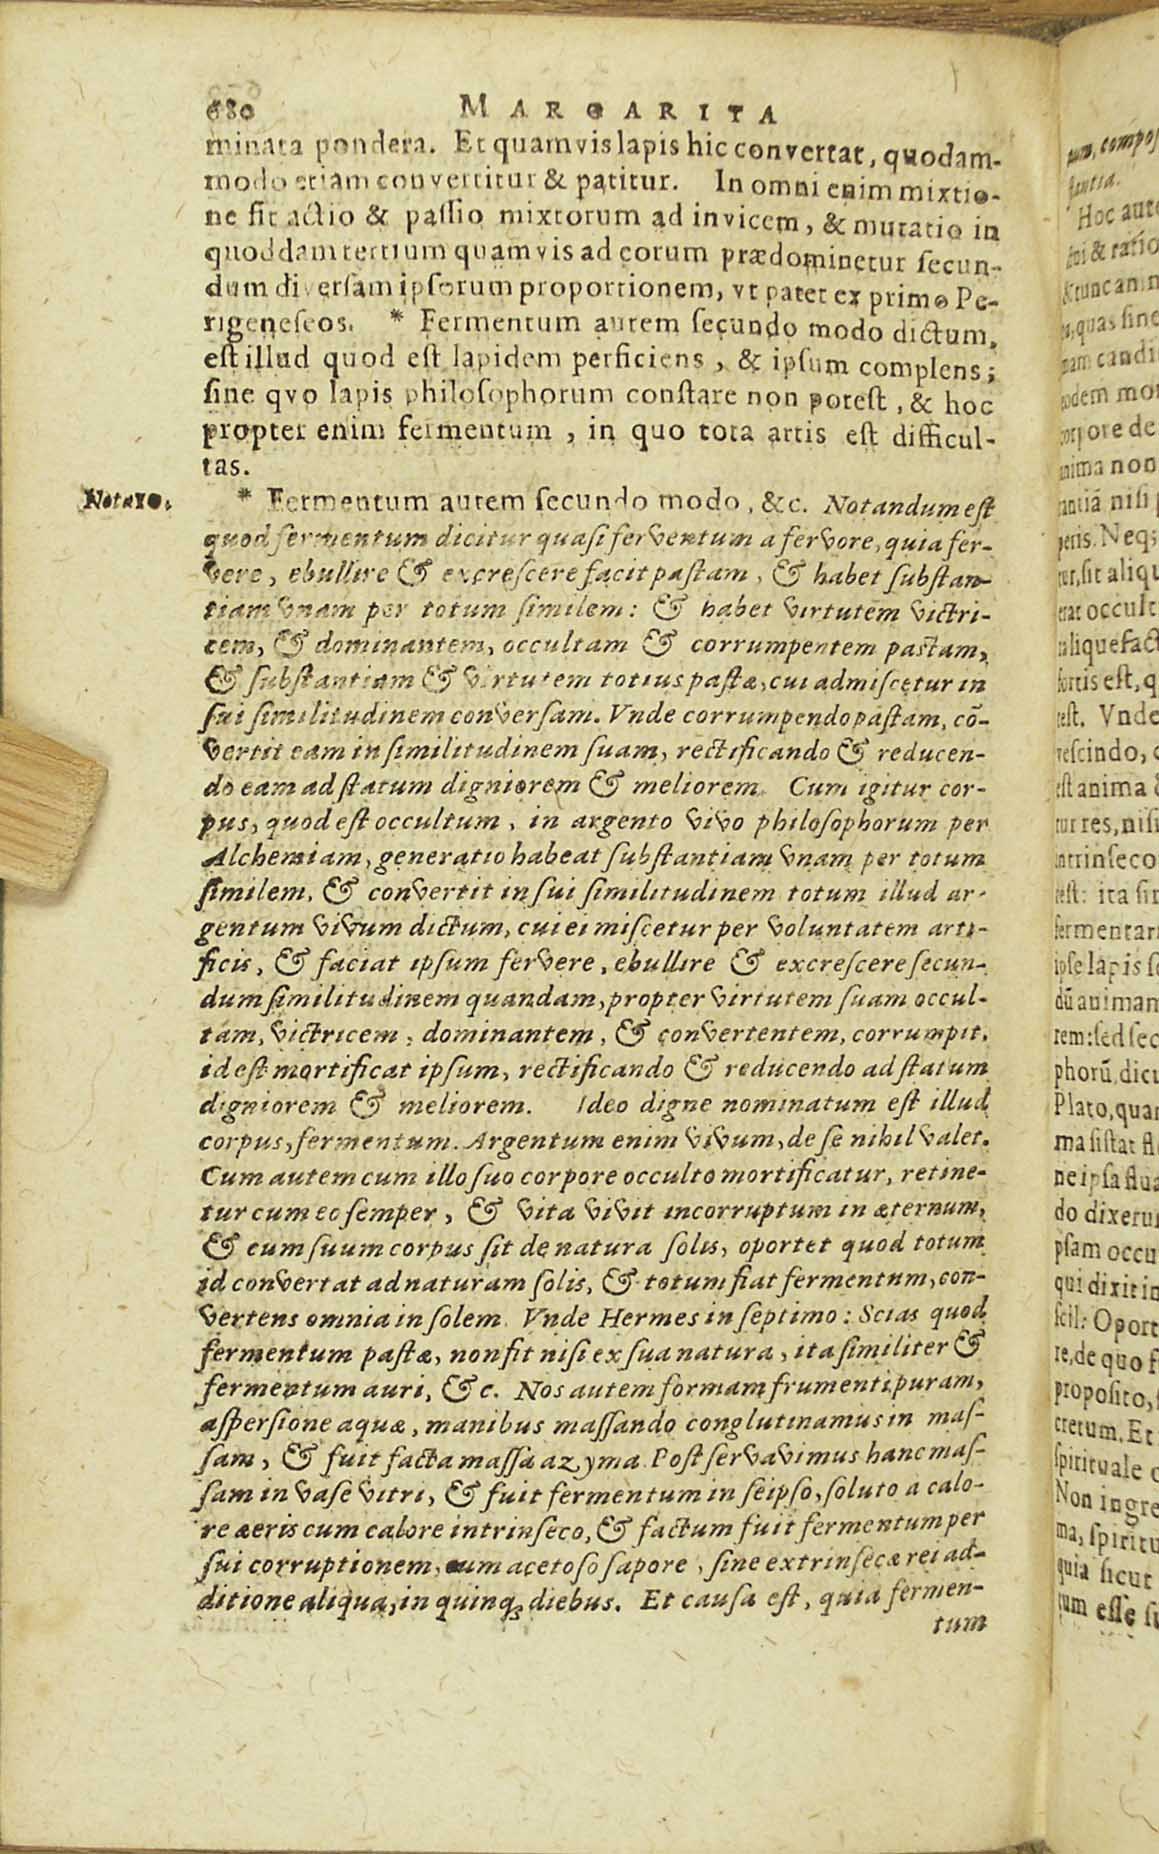 680 MARGARITA
minata pondera. Et quamvis lapis hic convertat, quodam-
modo etiam convertitur & patitur. In omni enim mixtio-
ne fit actio & passio mixtorum ad invicem, & mutatio in
quoddam tertium quamvis ad eorum prædominetur secun-
dum diversam ipsorum proportionem, vt patet ex primo Pe-
rigeneseos. * Fermentum autem secundo modo dictum,
est illud quod est lapidem perficiens, & ipsum complens;
sine qvo lapis philosophorum constare non potest, & hoc
propter enim fermentum, in quo tota artis est difficul-
tas.
Nota 10. * Fermentum autem secundo modo, &c. Notandum est
quod fermentum dicitur quasi ferventum a fervore, quia fer-
vere, ebullire & excrescere facit pastam, & habet substan-
tiam vnam per totum similem: & habet virtutem victri-
cem, & dominantem, occultam & corrumpentem pastam,
& substantiam & virtutem totius pastæ, cui admiscetur in
sui similitudinem conversam. Vnde corrumpendo pastam, cõ-
vertit eam in similitudinem suam, rectificando & reducen-
do eam ad statum digniorem & meliorem. Cum igitur cor-
pus, quod est occultum, in argento vivo philosophorum per
Alchemiam, generatio habeat substantiam vnam per totum
similem, & convertit in sui similitudinem totum illud ar-
gentum vivum dictum, cui ei miscetur per voluntatem arti-
ficis, & faciat ipsum fervere, ebullire & excrescere secun-
dum similitudinem quandam, propter virtutem suam occul-
tam, victricem, dominantem, & convertentem, corrumpit,
id est mortificat ipsum, rectificando & reducendo ad statum
digniorem & meliorem. Ideo digne nominatum est illud
corpus, fermentum. Argentum enim vivum, de se nihil valet.
Cum autem cum illo suo corpore occulto mortificatur, retine-
tur cum eo semper, & vita vivit incorruptum in æternum,
& cum suum corpus sit de natura solis, oportet quod totum
id convertat ad naturam solis, & totum fiat fermentum, con-
vertens omnia in solem. Vnde Hermes in septimo: Scias quod
fermentum pastæ, non fit nisi ex sua natura, ita similiter &
fermentum auri, &c. Nos autem formam frumenti puram,
aspersione aquæ, manibus massando conglutinamus in mas-
sam, & fuit facta massa azyma. Post servavimus hanc mas-
sam in vase vitri, & fuit fermentum in seipso, soluto a calo-
re aeris cum calore intrinseco, & factum fuit fermentum per
sui corruptionem, cum acetoso sapore, sine extrinsecæ rei ad-
ditione aliqua, in quinq; diebus. Et causa est, quia fermen-
tum